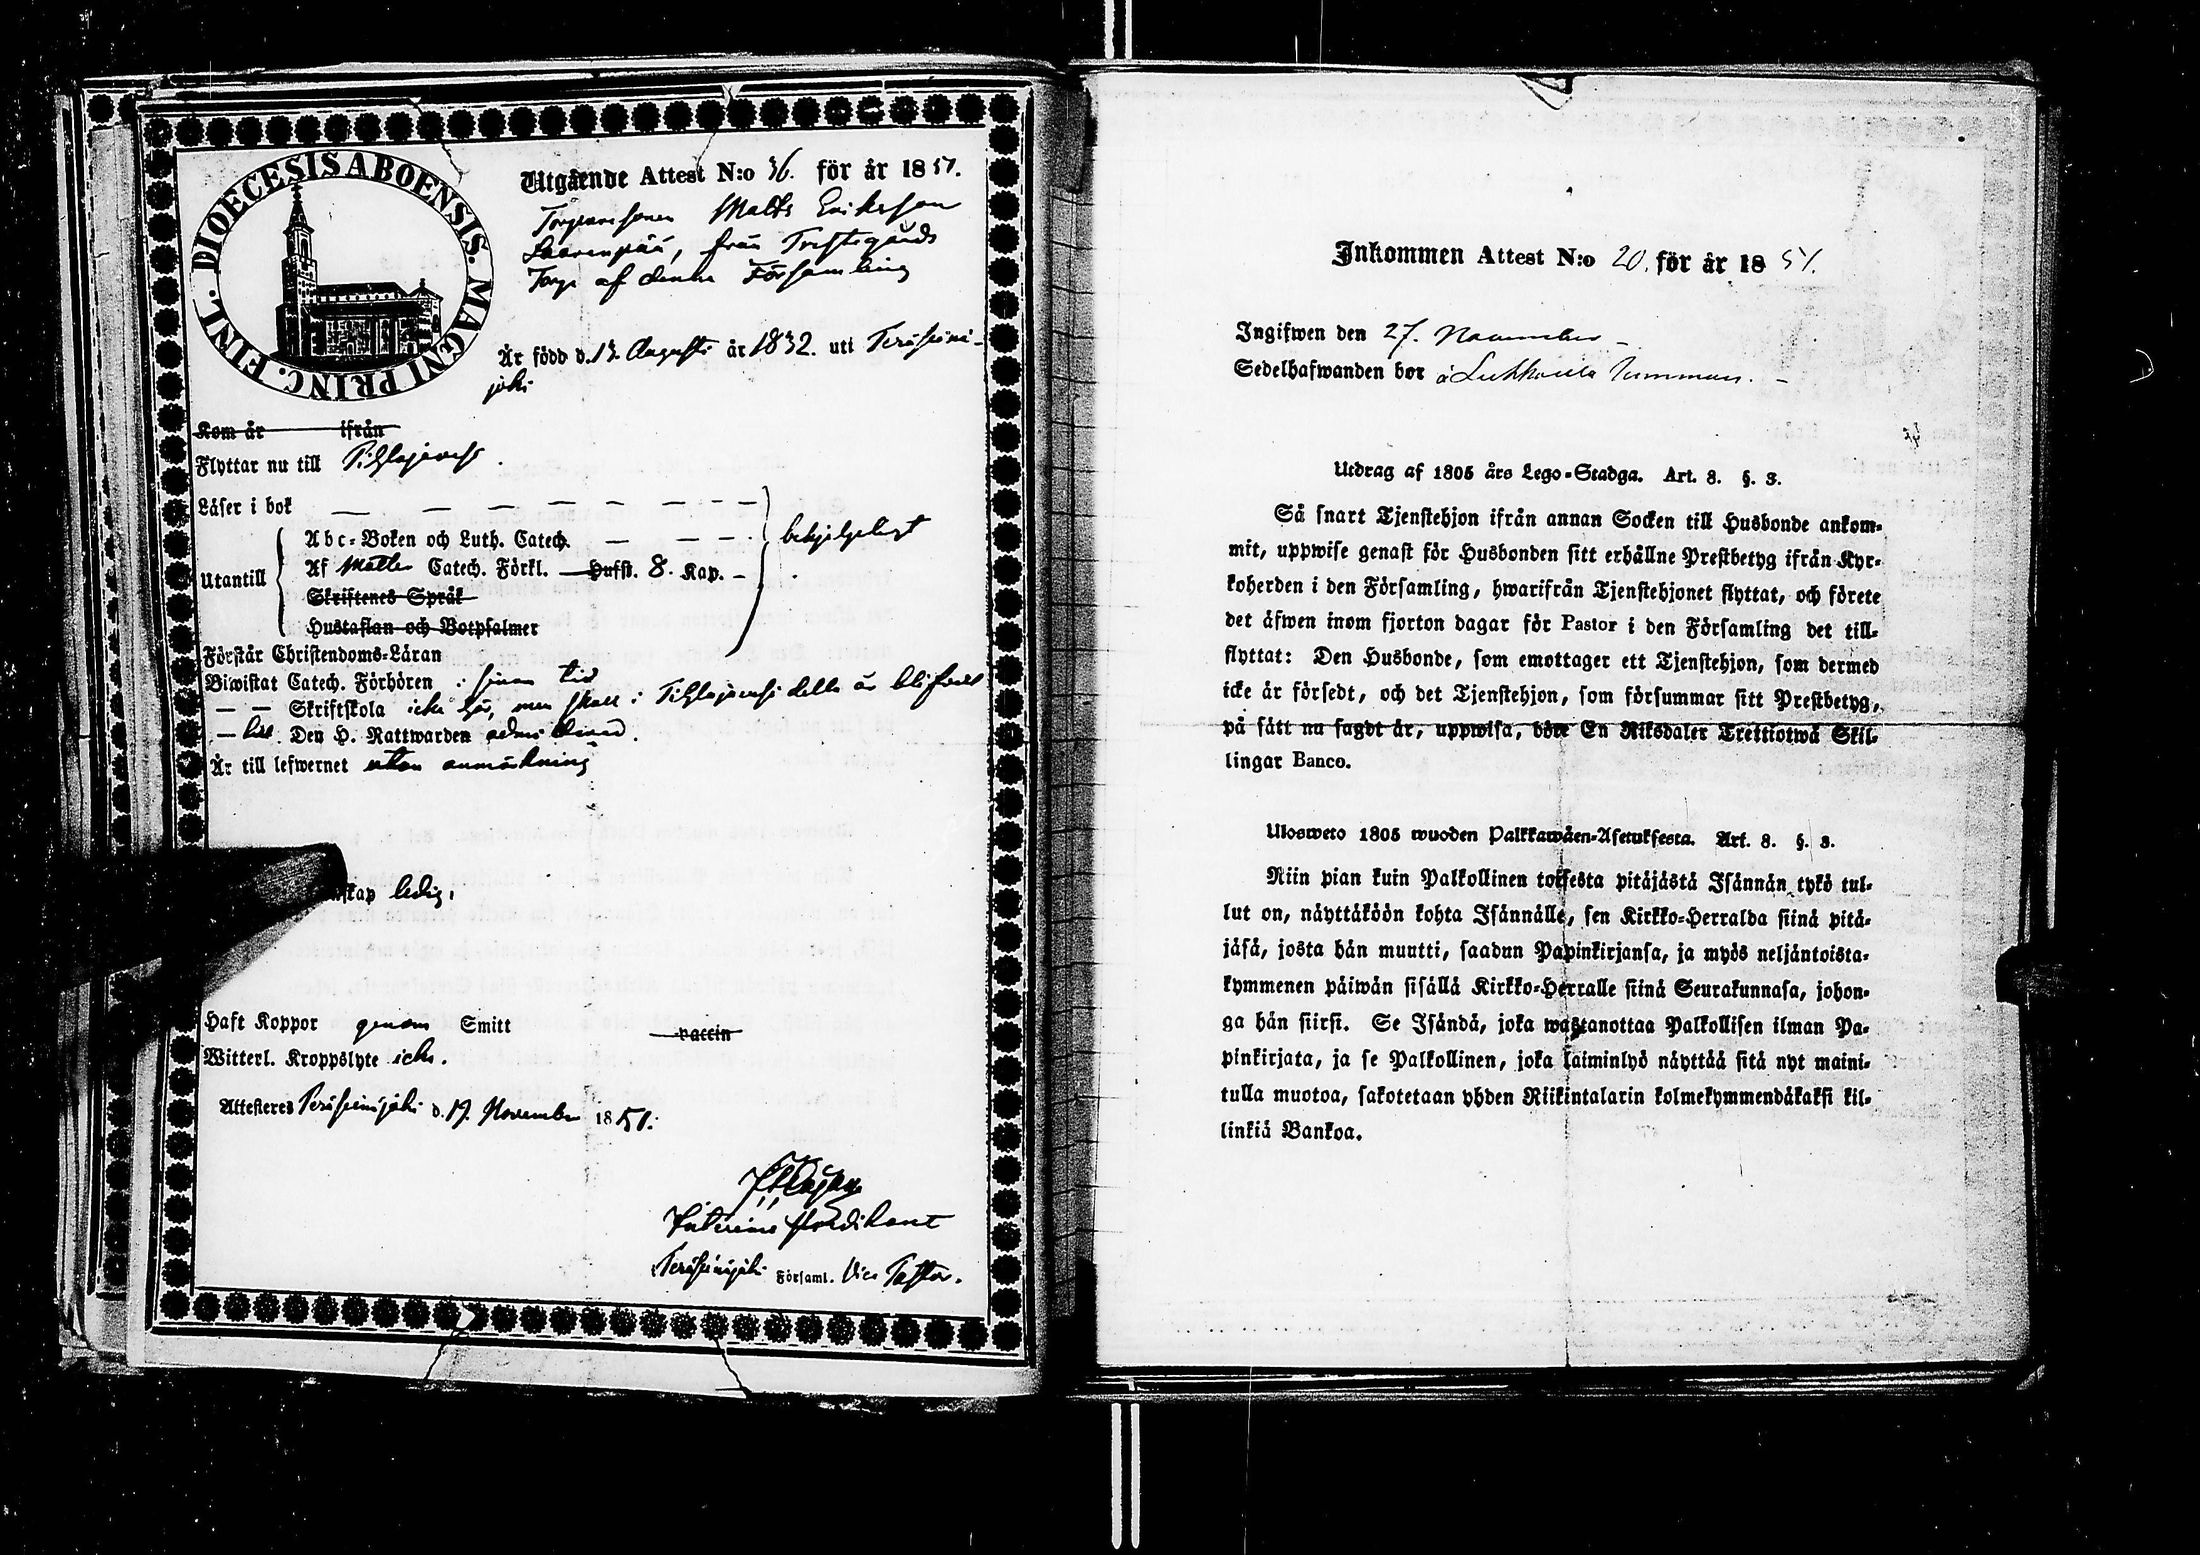 DIOECESIS ABOENSIS. MAGNI PRINC. FINL.
Utgående Attest N:o 36. för år 1851.
Torparesonen Matts Eriksson
Saarenpää, från Prestegårds
Torp af denna Församling
Är född d. 13. Augusti år 1832. uti Peräseinä-
joki
Kom år ifrån
Flyttar nu till Pihlajavesi.
Läser i bok
Abc-Boken och Luth. Catech.
Utantill
Af Catech. Förkl. Hufst. 8. Kap.
behjelpeligt
Skriftenes Språk
Hustaflan och Botpsalmer
Förstår Christendoms-Läran
Biwistat Catech. Förhören i sinom tid
— — Skriftskola icke här, men skall i Pihlajavesi
— Den H. Nattwarden
Är till lefwernet utan anmärkning
skap ledig.
Haft Koppor genom Smitt vaccin
Witterl. Kroppslyte icke.
Attesteres Peräseinäjoki d. 17. November 1851.
Interims Predikant
Peräseinäjoki Församl. Vice Pastor.
Inkommen Attest N:o 20. för år 1851.
Ingifwen den 27. November
Sedelhafwanden bor å
Utdrag af 1805 års Lego-Stadga. Art. 8. §. 3.
Så snart Tjenstehjon ifrån annan Socken till Husbonde ankom-
mit, uppwise genast för Husbonden sitt erhållne Prestbetyg ifrån Kyr-
koherden i den Församling, hwarifrån Tjenstehjonet flyttat, och förete
det äfwen inom fjorton dagar för Pastor i den Församling det till-
flyttat: Den Husbonde, som emottager ett Tjenstehjon, som dermed
icke är försedt, och det Tjenstehjon, som försummar sitt Prestbetyg,
på sätt nu sagdt är, uppwisa, böte En Riksdaler Trettiotwå Skil-
lingar Banco.
Ulosweto 1805 wuoden Palkkawäen-Asetuksesta. Art. 8. §. 3.
Niin pian kuin Palkollinen toisesta pitäjästä Isännän tykö tul-
lut on, näyttäköön kohta Isännälle, sen Kirkko-Herralda siinä pitä-
jäsä, josta hän muutti, saadun Papinkirjansa, ja myös neljäntoista-
kymmenen päiwän sisällä Kirkko-Herralle siinä Seurakunnasa, johon-
ga hän siirsi. Se Isändä, joka wastanottaa Palkollisen ilman Pa-
pinkirjata, ja se Palkollinen, joka laiminlyö näyttää sitä nyt maini-
tulla muotoa, sakotetaan yhden Riikintalarin kolmekymmendäkaksi kil-
linkiä Bankoa.